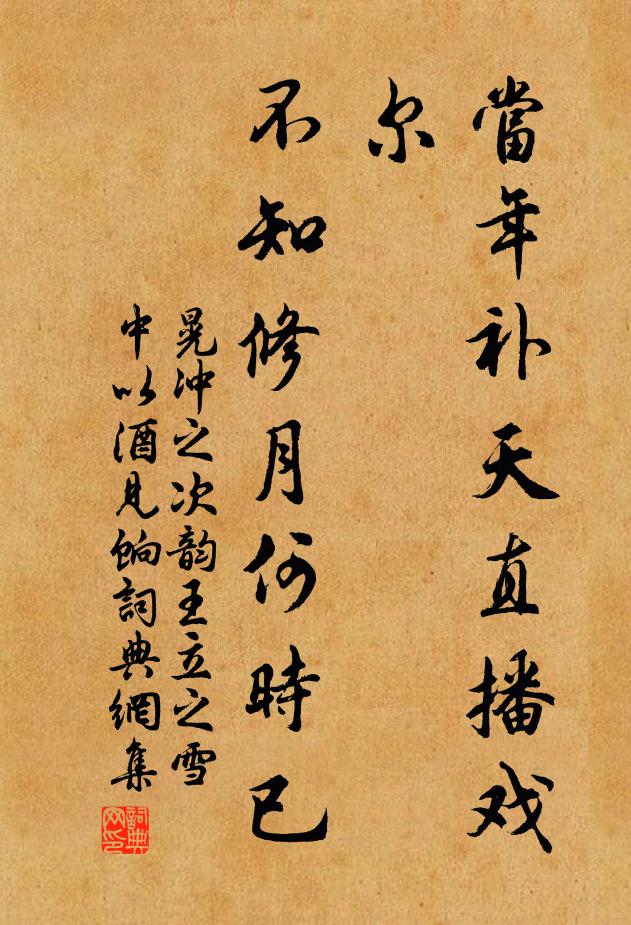 當年补天直播戏
尔
不知修月何時已
晁沖之次韵王立之雪
中以酒見餉詞典網集
詞典
网印